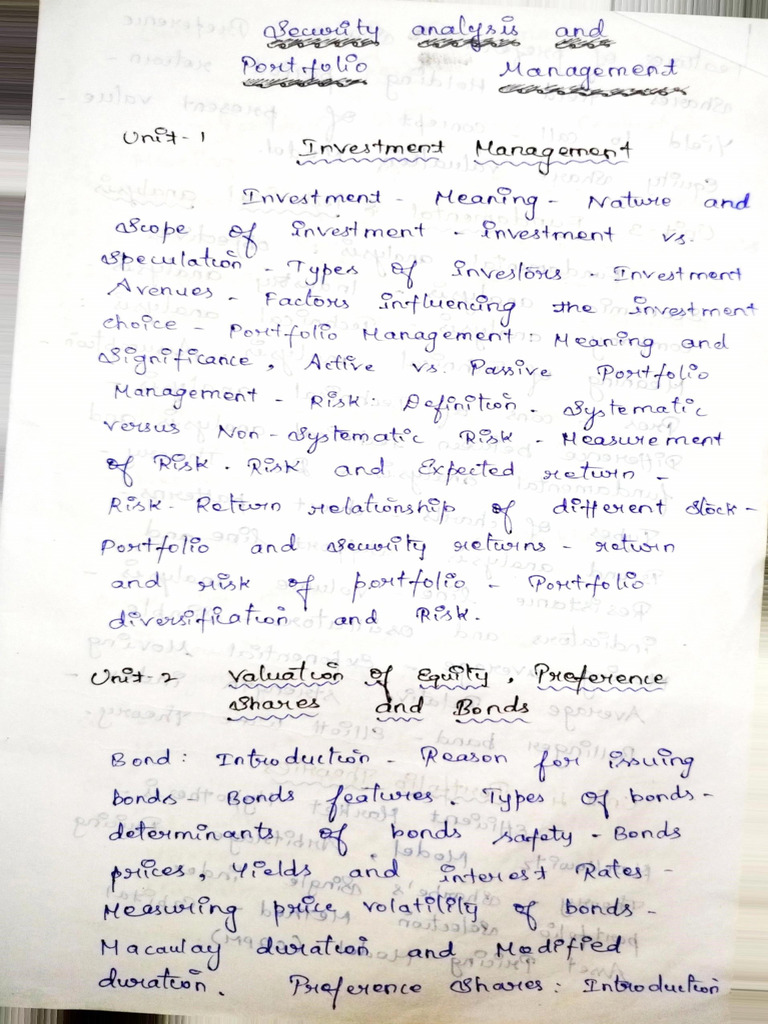 Security analysis and
Portfolio Management
Unit-1 Investment Management
Investment - Meaning - Nature and
Scope of investment - investment vs.
Speculation - Types of Investors - Investment
Avenues - Factors influencing the investment
choice - Portfolio Management: Meaning and
Significance, Active vs. Passive Portfolio
Management - Risk: Definition. Systematic
versus Non-Systematic Risk - Measurement
of Risk. Risk and Expected return -
Risk-Return relationship of different stock -
Portfolio and Security returns - return
and risk of portfolio - Portfolio
diversification and Risk.
Unit-2 Valuation of Equity, Preference
Shares and Bonds
Bond: Introduction - Reason for issuing
bonds - Bonds features. Types of bonds -
determinants of bonds safety - Bonds
prices, Yields and interest Rates -
Measuring price volatility of bonds -
Macaulay duration and Modified
duration. Preference Shares: Introduction